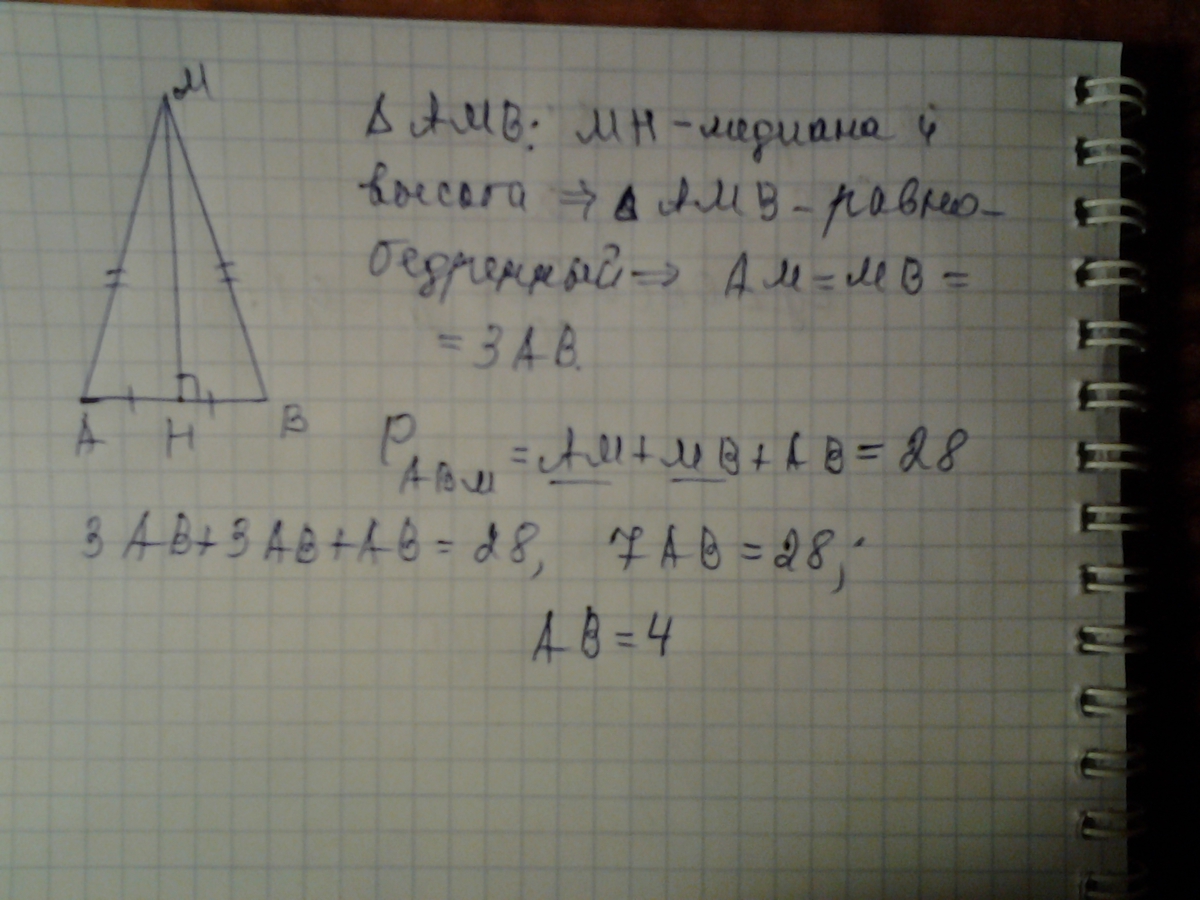 M
A H B
Δ AMB: MH - медиана и
высота ⇒ Δ AMB - равно-
бедренный ⇒ AM = MB =
= 3AB.
P ABM = AM + MB + AB = 28
3 AB + 3AB + AB = 28, 7AB = 28;
AB = 4